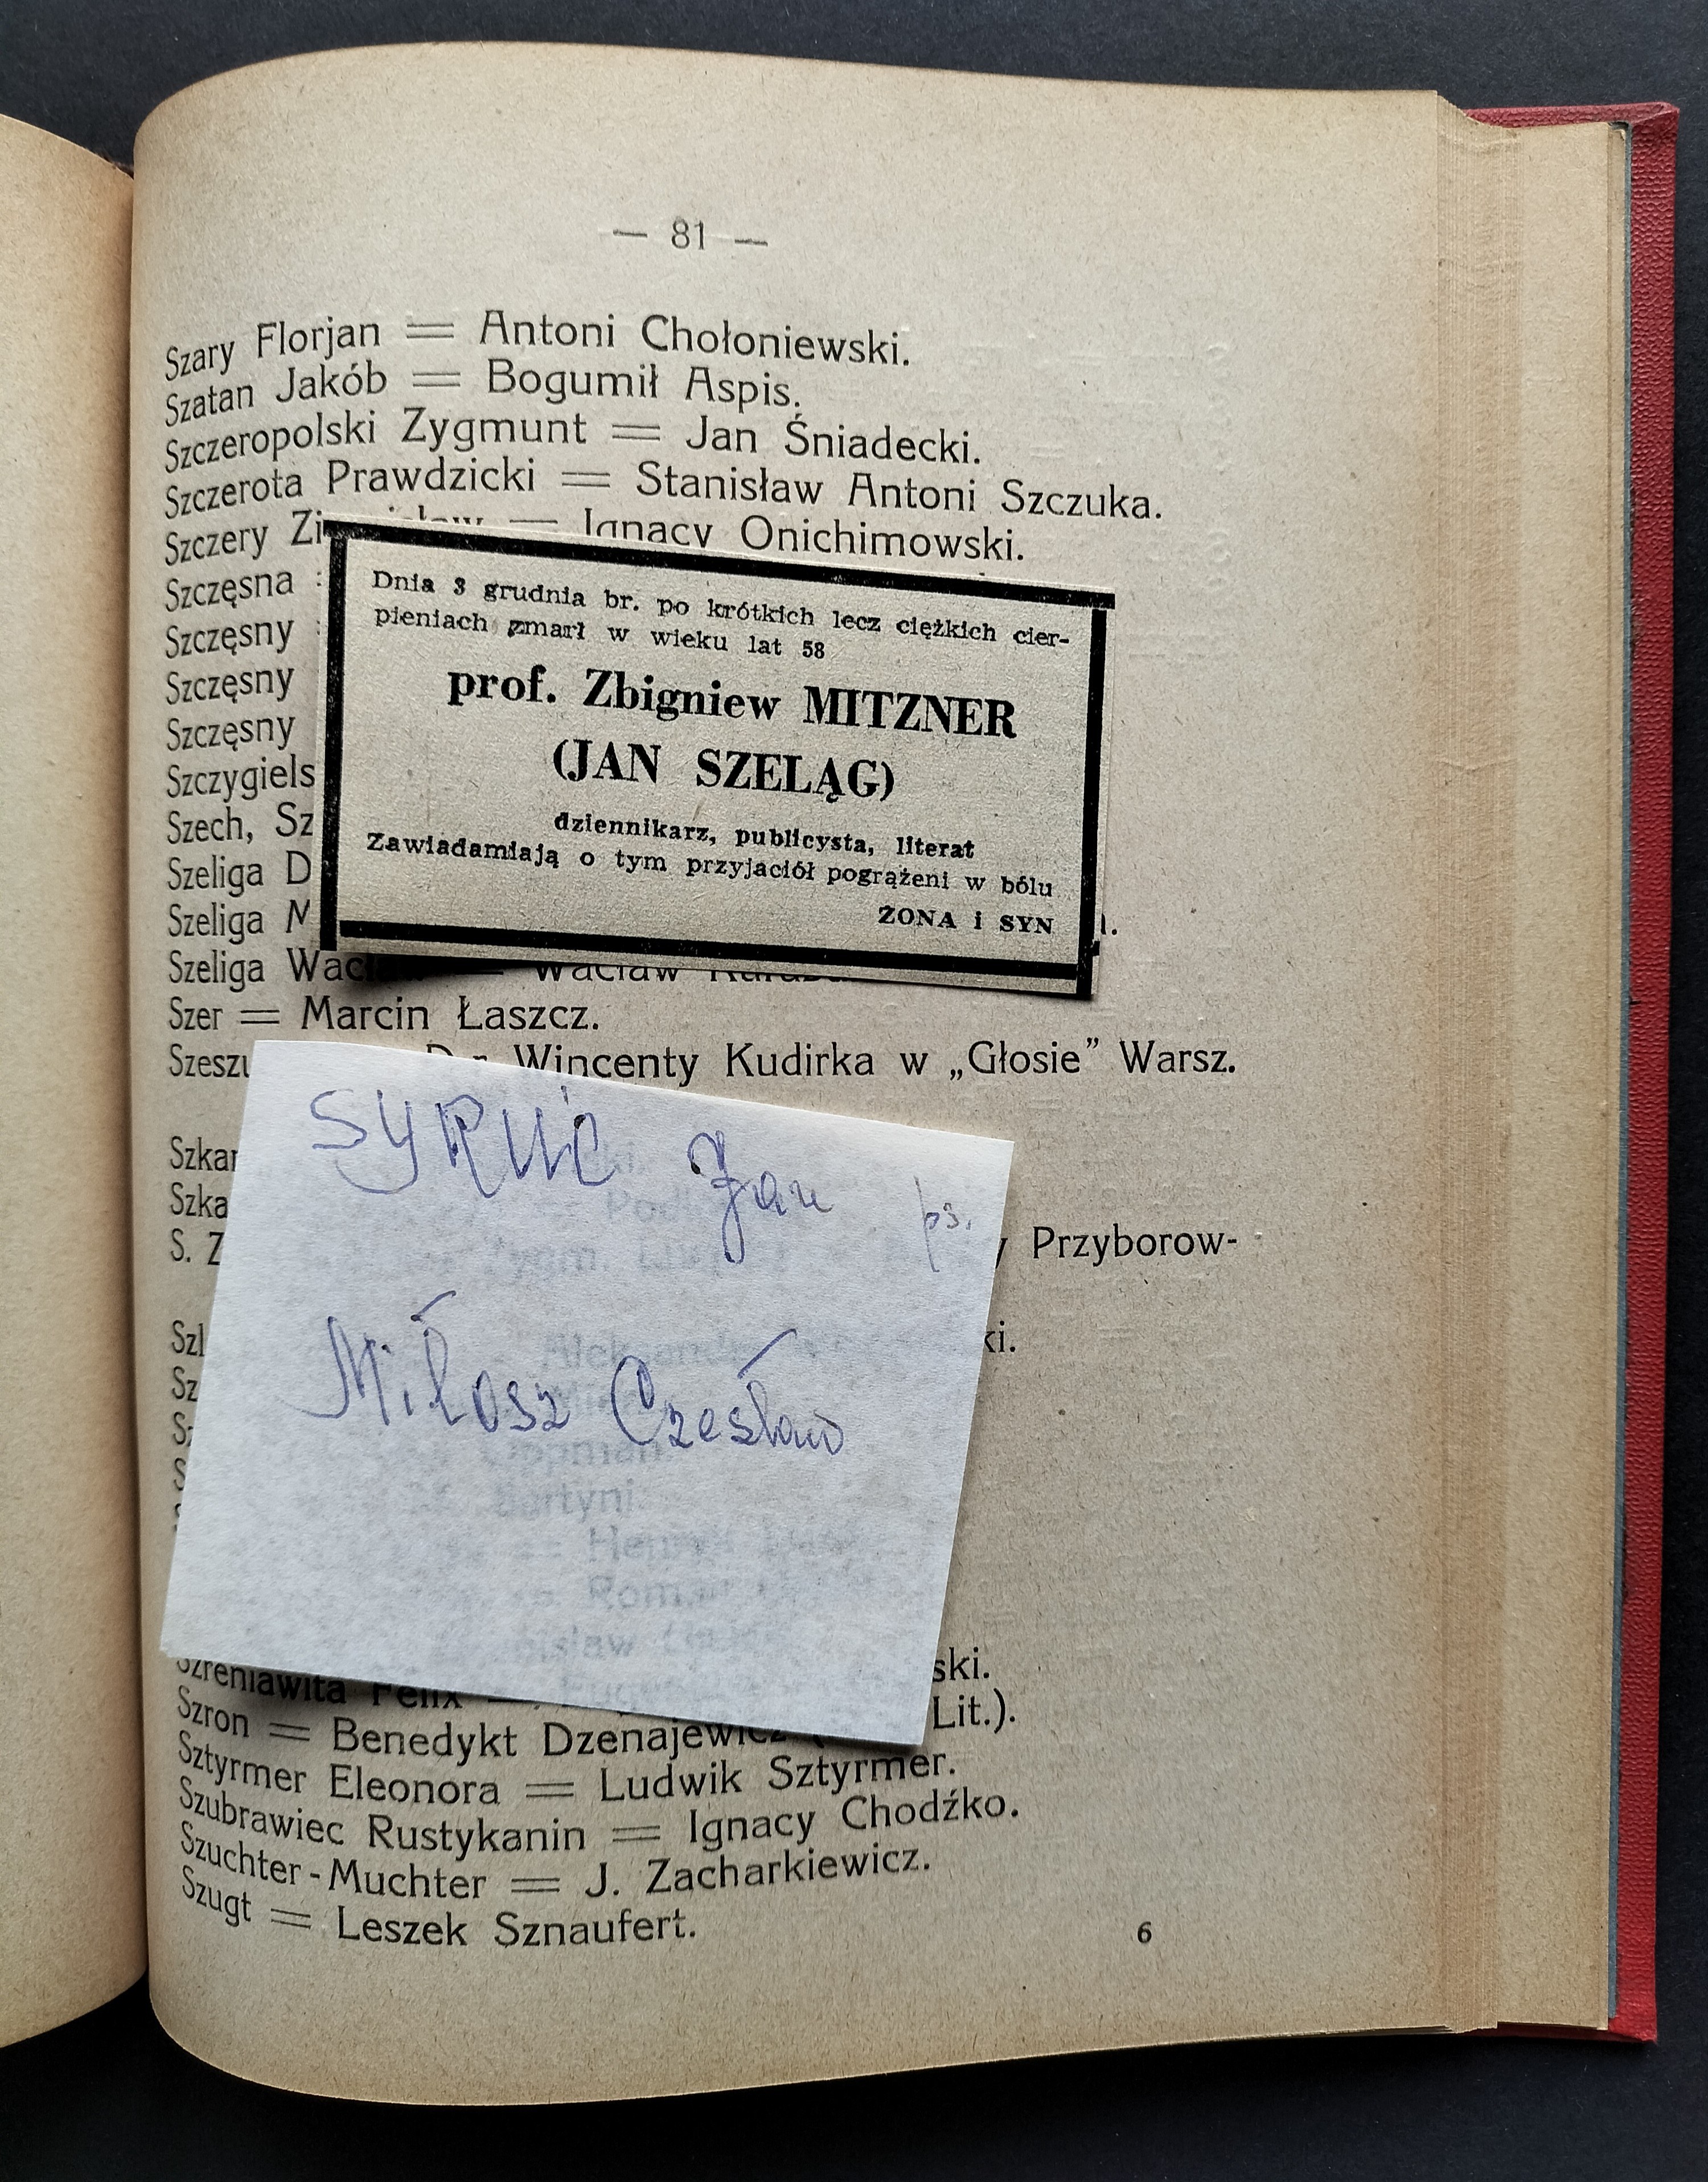 — 81 —
Szary Florjan = Antoni Chołoniewski.
Szatan Jakób = Bogumił Aspis.
Szczeropolski Zygmunt = Jan Śniadecki.
Szczerota Prawdzicki = Stanisław Antoni Szczuka.
Szczery = Ignacy Onichimowski.
Szczęsna
Szczęsny
Szczęsny
Szczęsny
Szczygiels
Szech, Sz
Szeliga D
Szeliga M
Szeliga = Wacław
Szer = Marcin Łaszcz.
Szeszu Wincenty Kudirka w „Głosie” Warsz.
Szkar
Szka
S. Z Przyborow-
Szl ki.
Sz
ski.
Szreniawita Felix
Szron = Benedykt Dzenajewicz Lit.).
Sztyrmer Eleonora = Ludwik Sztyrmer.
Szubrawiec Rustykanin = Ignacy Chodźko.
Szuchter-Muchter = J. Zacharkiewicz.
Szugt = Leszek Sznaufert.
6
Dnia 3 grudnia br. po krótkich lecz ciężkich cier-
pieniach zmarł w wieku lat 58
prof. Zbigniew MITZNER
(JAN SZELĄG)
dziennikarz, publicysta, literat
Zawiadamiają o tym przyjaciół pogrążeni w bólu
ŻONA i SYN
SYRUĆ Jan ps.
Miłosz Czesław